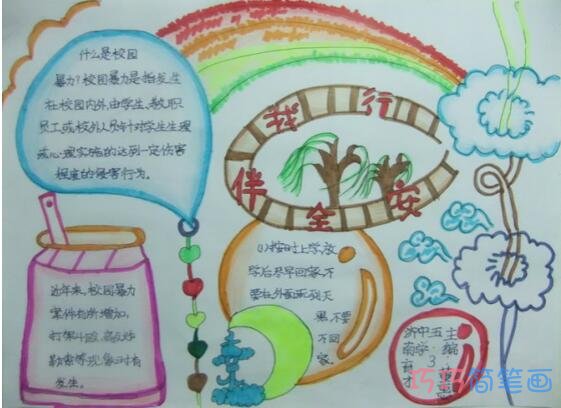 什么是校园
暴力?校园暴力是指发生
在校园内外,由学生、教职
员工或校外人员针对学生生理
或心理实施的达到一定伤害
程度的侵害行为。
安全伴我行
(1)按时上学,放
学后尽早回家,不
要在外面玩到天
黑不要
不回
家。
近年来,校园暴力
案件有所增加,
打架斗殴、
勒索等现象时有
发生。
主编
五·3
中学
济南
巧巧简笔画